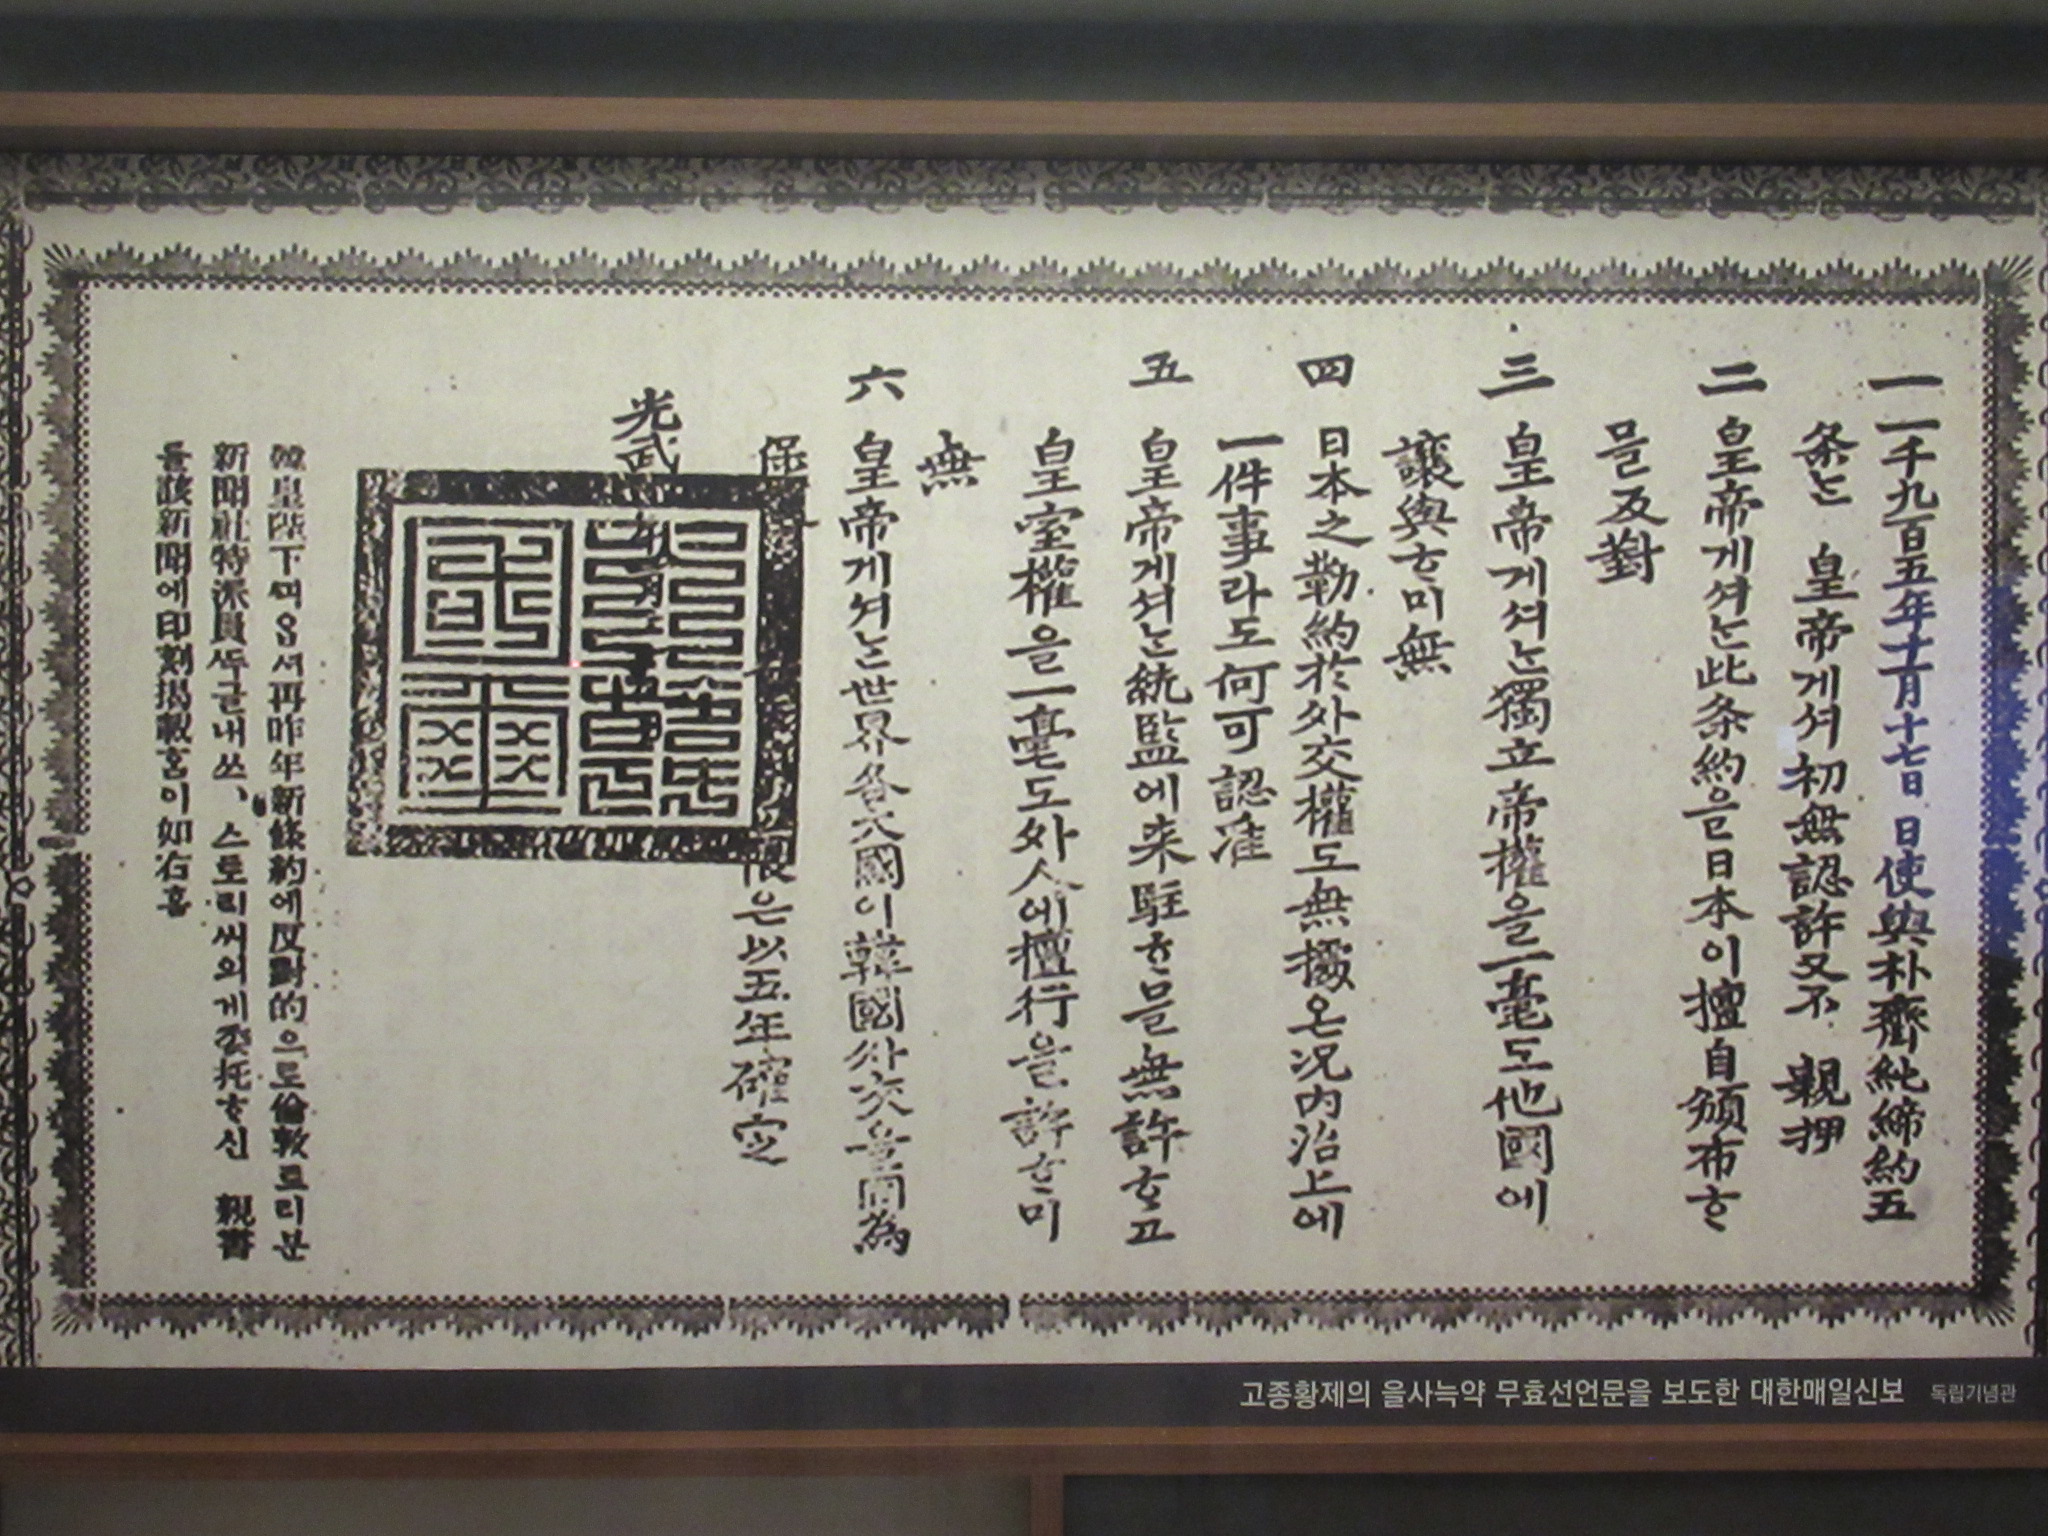 一 一千九百五年十一月十七日 日使與朴齊純締約五
条는 皇帝게셔 初無認許又不 親押
二 皇帝게셔는此条約을日本이擅自頒布ᄒᆞ
믈反對
三 皇帝게셔는獨立帝權을一毫도他國에
讓與ᄒᆞ미無
四 日本之勒約於外交權도無據온況内治上에
一件事라도何可認准
五 皇帝게셔는統監에来駐ᄒᆞ믈無許ᄒᆞ고
皇室權을一毫도外人에擅行을許ᄒᆞ미
無
六 皇帝게셔는世界各大國이韓國外交을同為
保
은以五年確定
光武
韓皇陛下며ᄋᆞᆸ셔再昨年新條約에反對的으로倫敦트리분
新聞社特派員ᄯᅮ글내쓰、스토리씨의게委托ᄒᆞ신 親書
를該新聞에印刻揭載홈이如右홈
고종황제의 을사늑약 무효선언문을 보도한 대한매일신보 독립기념관